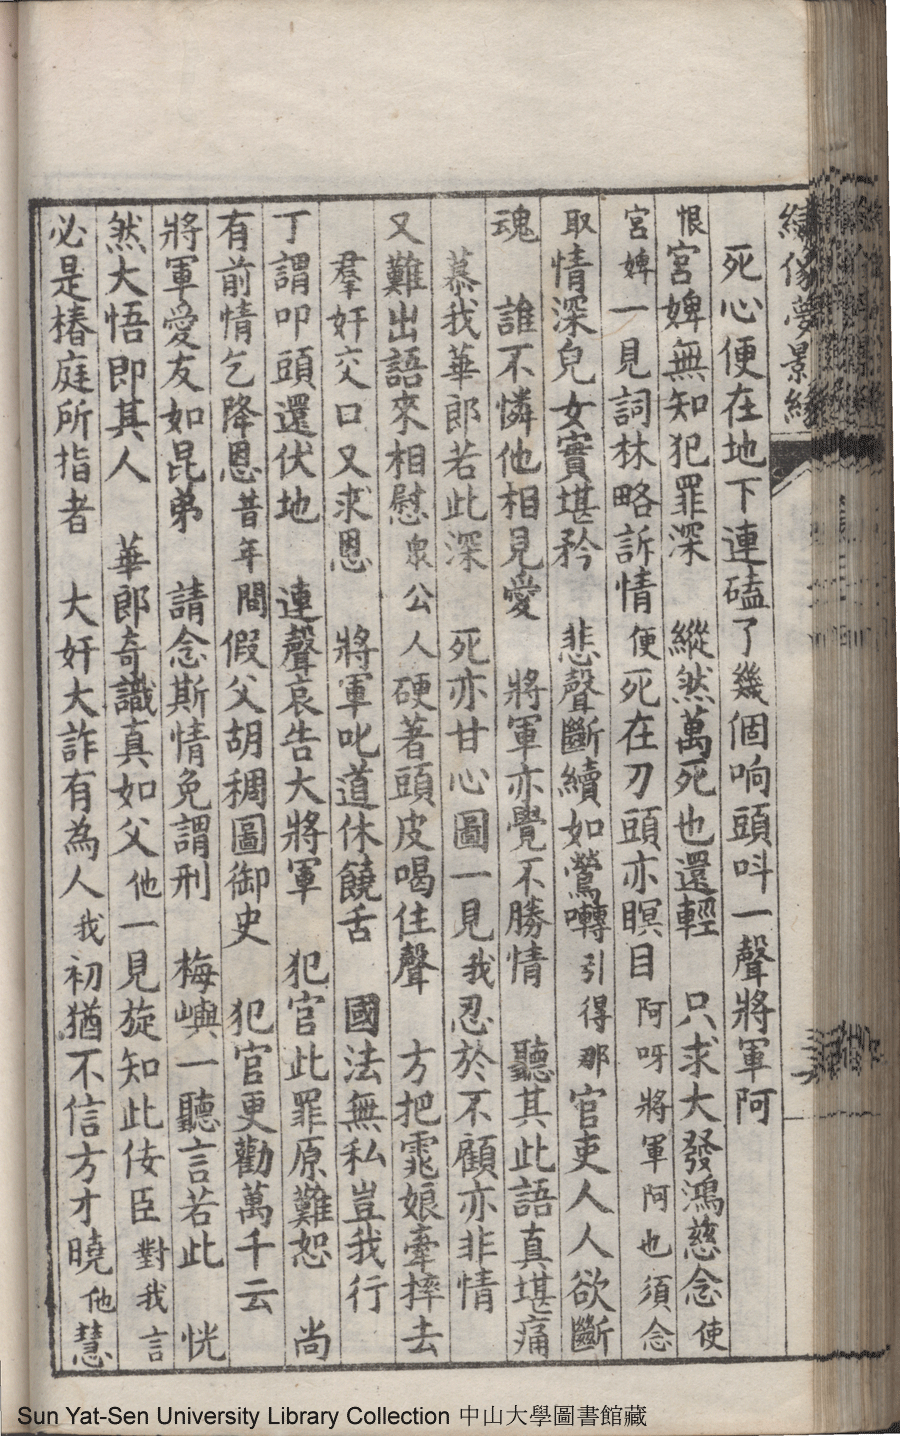 繡像夢景緣
死心便在地下連磕了幾個响頭呌一聲將軍阿
恨宮婢無知犯罪深 縱然萬死也還輕 只求大發鴻慈念使
宮婢一見詞林略訴情便死在刀頭亦暝目阿呀將軍阿也須念
取情深兒女實堪矜 悲聲斷續如鶯囀引得那官吏人人欲斷
魂 誰不憐他相見愛 將軍亦覺不勝情 聽其此語真堪痛
慕我華郎若此深 死亦甘心圖一見我忍於不顧亦非情
又難出語來相慰衆公人硬著頭皮喝住聲 方把霓娘牽摔去
羣奸交口又求恩 將軍叱道休饒舌 國法無私豈我行
丁謂叩頭還伏地 連聲哀告大將軍 犯官此罪原難恕 尚
有前情乞降恩昔年間假父胡稠圖御史 犯官更勸萬千云
將軍愛友如昆弟 請念斯情免謂刑 梅嶼一聽言若此 恍
然大悟即其人 華郎奇識真如父他一見旋知此佞臣對我言
必是椿庭所指者 大奸大詐有為人我初猶不信方才曉他慧
Sun Yat-Sen University Library Collection 中山大學圖書館藏